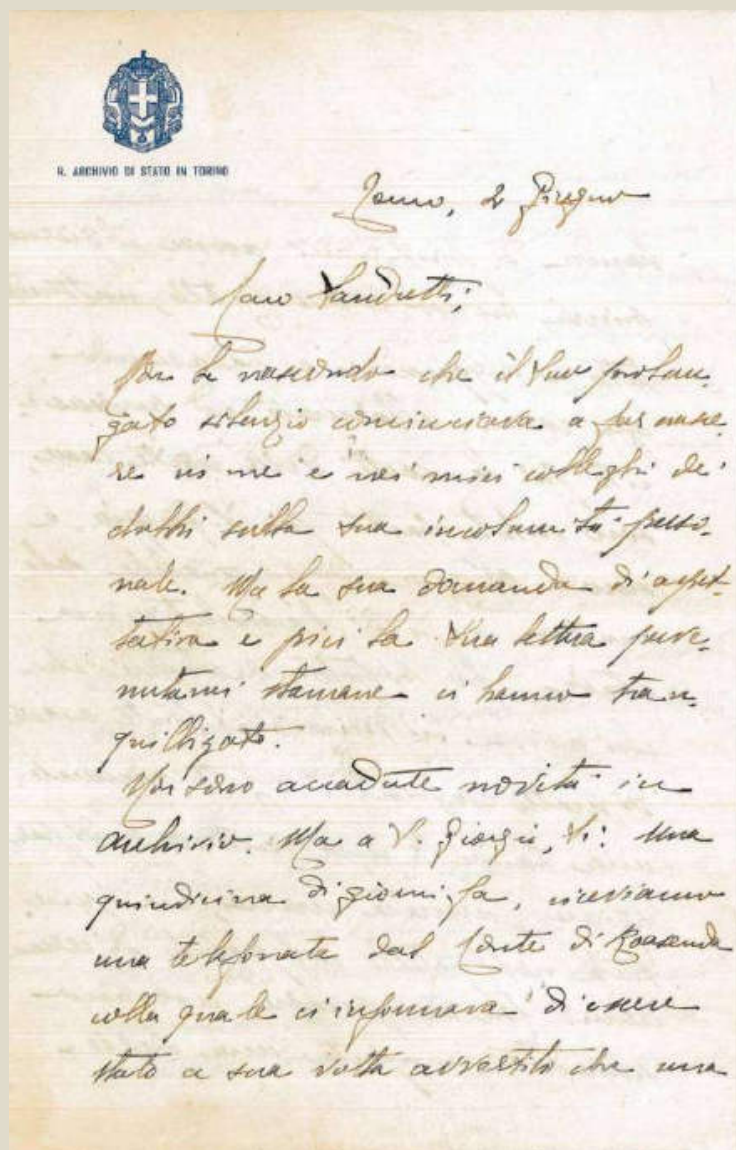 R. ARCHIVIO DI STATO IN TORINO
Torino, 2 Giugno
Caro Sandretti,
Non Le nascondo che il Suo prolun-
gato silenzio cominciava a far nasce-
re in me e nei miei colleghi de'
dubbi sulla sua incolumità perso-
nale. Ma la sua domanda di aspet-
tativa e più la Sua lettera perve-
nutami stamane ci hanno tran-
quillizato.
Non sono accadute novità in
archivio. Ma a S. Giorgio, Sì: una
quindicina di giorni fa, riceviamo
una telefonata dal Conte di Roasenda
colla quale ci informava di essere
stato a sua volta avvertito che una